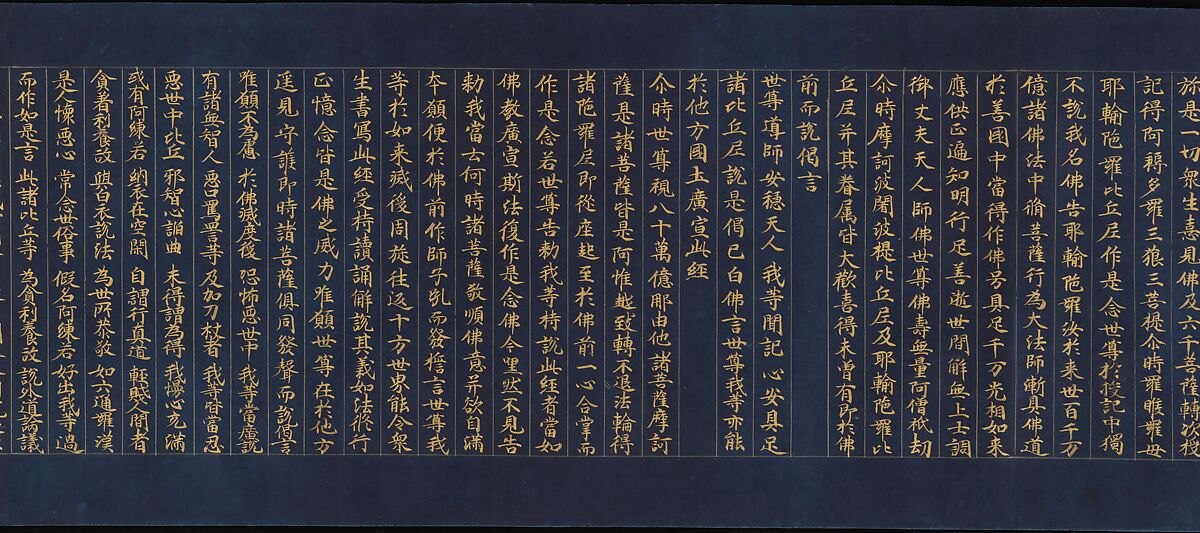 於是一切衆生憙見佛及六千菩薩轉次授
記得阿耨多羅三藐三菩提尒時羅睺羅母
耶輸陁羅比丘尼作是念世尊於授記中獨
不說我名佛告耶輸陁羅汝於来世百千万
億諸佛法中脩菩薩行為大法師漸具佛道
於善國中當得作佛号具足千万光相如来
應供正遍知明行足善逝世間解無上士調
御丈夫天人師佛世尊佛壽無量阿僧祇劫
尒時摩訶波闍波提比丘尼及耶輸陁羅比
丘尼并其眷属皆大歡喜得未曽有即於佛
前而說偈言
世尊導師安穩天人 我等聞記心安具足
諸比丘尼說是偈已白佛言世尊我等亦能
於他方國土廣宣此經
尒時世尊視八十萬億那由他諸菩薩摩訶
薩是諸菩薩皆是阿惟越致轉不退法輪得
諸陁羅尼即從座起至於佛前一心合掌而
作是念若世尊告勑我等持說此經者當如
佛教廣宣斯法復作是念佛今默然不見告
勑我當云何時諸菩薩敬順佛意并欲自滿
本願便於佛前作師子吼而發誓言世尊我
等於如来滅後周旋往返十方世界能令衆
生書寫此經受持讀誦解說其義如法脩行
正憶念皆是佛之威力唯願世尊在於他方
遥見守護即時諸菩薩俱同發聲而說偈言
唯願不為慮 於佛滅度後 恐怖悪世中 我等當廣說
有諸無智人 悪口罵詈等 及加刀杖者 我等皆當忍
悪世中比丘 邪智心諂曲 未得謂為得 我慢心充滿
或有阿練若 納衣在空閑 自謂行真道 輕賤人間者
貪著利養故 與白衣說法 為世所恭敬 如六通羅漢
是人懐悪心 常念世俗事 假名阿練若 好出我等過
而作如是言 此諸比丘等 為貪利養故 說外道論議